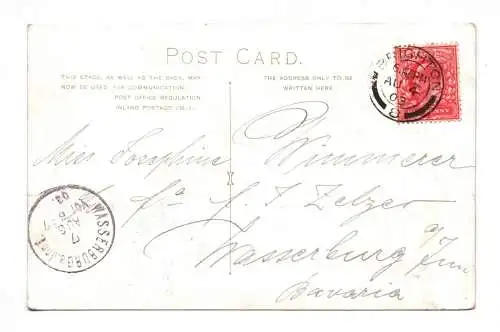 POST CARD.
THIS SPACE, AS WELL AS THE BACK, MAY
NOW BE USED FOR COMMUNICATION.
POST OFFICE REGULATION.
INLAND POSTAGE ONLY.
THE ADDRESS ONLY TO BE
WRITTEN HERE.
BRIGHTON
AU 4
8
Miss Josephine Wimmerer
X
f. Zelger
Wasserburg a/ Inn
Bavaria
WASSERBURG a. Inn
7
AUG